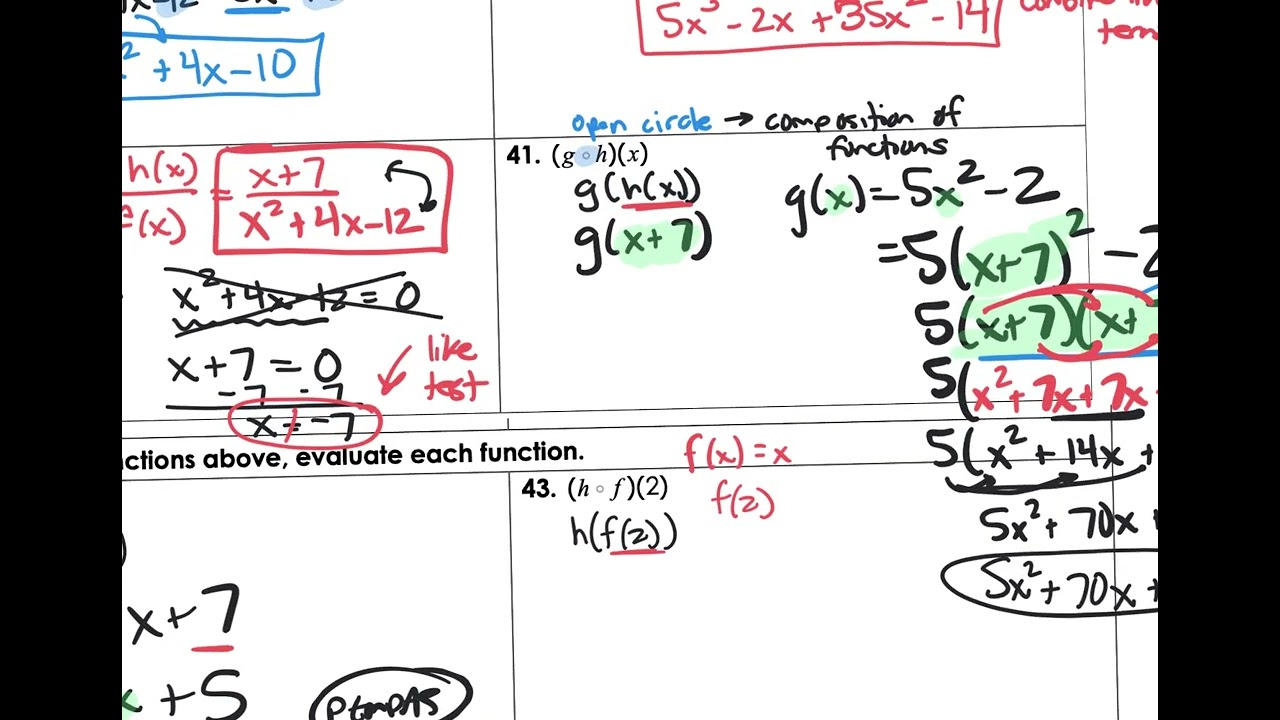 x² + 4x - 10
5x³ - 2x + 35x² - 14
open circle → composition of functions
h(x) = x+7
f(x) x² + 4x - 12
x² + 4x - 12 = 0
x + 7 = 0
-7 -7
x ≠ -7
like
test
41. (g ∘ h)(x)
g(h(x))
g(x + 7)
g(x) = 5x² - 2
= 5(x+7)² - 2
5(x+7)(x+
5(x² + 7x + 7x
5(x² + 14x +
5x² + 70x
5x² + 70x +
ctions above, evaluate each function.
x + 7
x + 5
43. (h ∘ f)(2)
h(f(2))
f(x) = x
f(2)